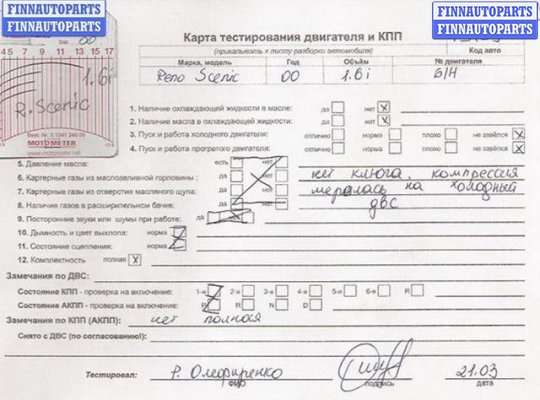 FINNAUTOPARTS FINNAUTOPARTS
FINNAUTOPARTS FINNAUTOPARTS
00
4 5 7 9 11 13 15 17
1.6i
R. Scenic
MOTOMETER
Карта тестирования двигателя и КПП
(прикалывать к листу разборки автомобиля)
Код авто
Марка, модель Год Объём № двигателя
Рено Scenic 00 1.6 i Б/Н
1. Наличие охлаждающей жидкости в масле: да нет X
2. Наличие масла в охлаждающей жидкости: да нет X
3. Пуск и работа холодного двигателя: отлично норма плохо не завёлся X
4. Пуск и работа прогретого двигателя: отлично норма плохо не завёлся X
5. Давление масла: есть нет
6. Картерные газы из маслозаливной горловины : да нет нет ключа, компрессия
7. Картерные газы из отверстия масляного щупа: да нет мералась на холодный
8. Наличие газов в расширительном бачке: да нет двс
9. Посторонние звуки или шумы при работе: да
10. Дымность и цвет выхлопа: норма
11. Состояние сцепления: норма
12. Комплектность полная X
Замечания по ДВС:
Состояние КПП - проверка на включение: 1-я 2-я 3-я 4-я 5-я R
Состояние АКПП - проверка на включение: P R N D
Замечания по КПП (АКПП): нет полноя
Снято с ДВС (по согласованию!):
Тестировал: Р. Олефиренко 21.03
ФИО подпись дата